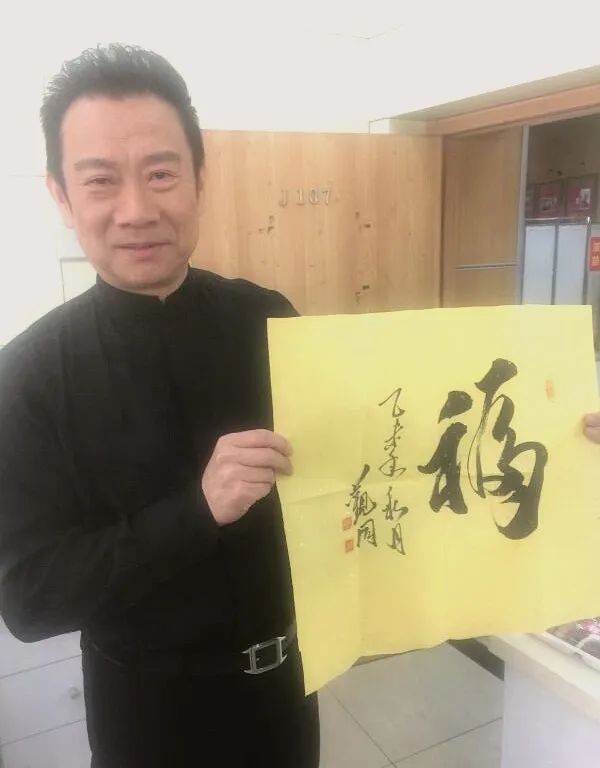 J107
福
乙未年秋月
觀同